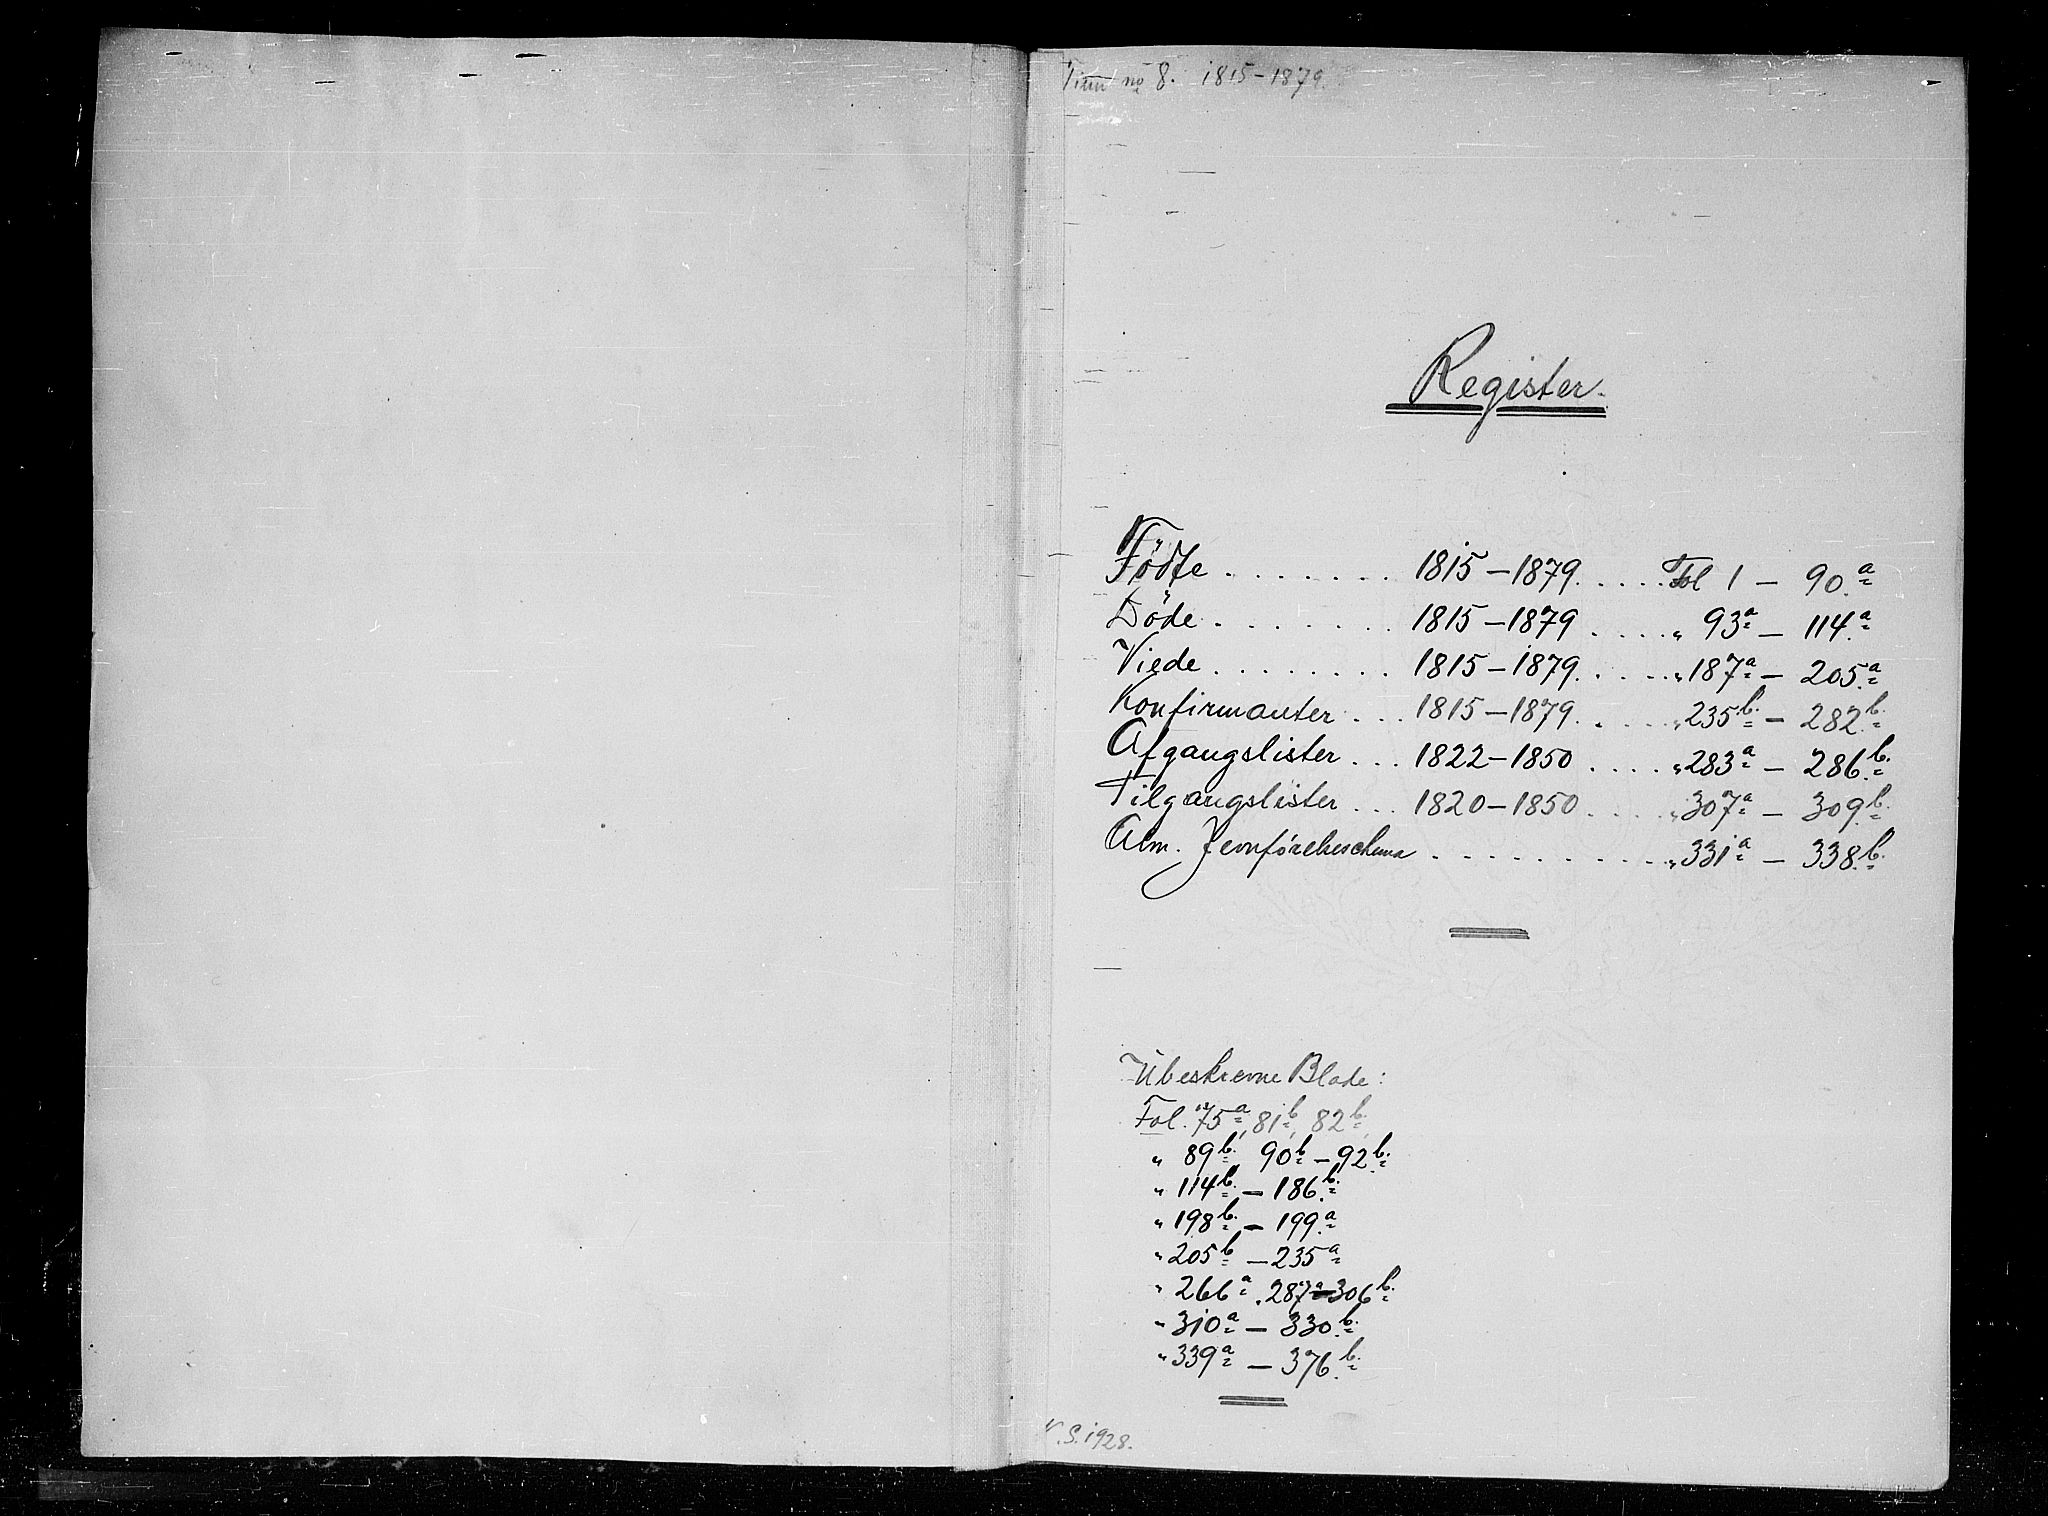 Tinn no 8. 1815-1879.
Register.
Födte . . . . . . . 1815-1879. . . . . Fol 1 - 90.a
Döde . . . . . . . 1815-1879 . . . . " 93a - 114.a
Viede . . . . . . . . 1815-1879. . . . . " 187a - 205.a
Konfirmanter . . . 1815-1879. . . . . " 235b. - 282.b.
Afgangslister . . . 1822-1850 . . . . " 283a - 286.b.
Tilgangslister . . . 1820-1850 . . . . " 307a - 309.b.
Alm. Jevnförelseschema . . . . . . . . . . " 331a - 338.b.
Ubeskrevne Blade:
Fol. 75a, 81b, 82b,
" 89b. 90b - 92b.
" 114b. - 186.b.
" 198b. - 199.a
" 205b - 235a
" 266a. 287a-306b.
" 310a - 330.b.
" 339a - 376.b.
S. 1928.